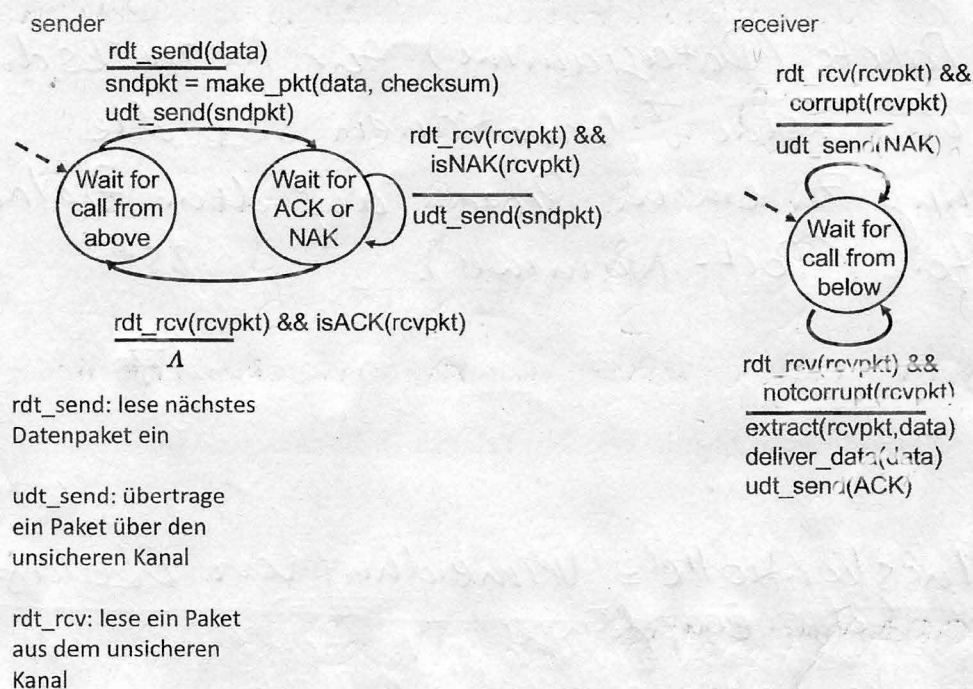 sender
rdt_send(data)
sndpkt = make_pkt(data, checksum)
udt_send(sndpkt)
Wait for
call from
above
Wait for
ACK or
NAK
rdt_rcv(rcvpkt) &&
isNAK(rcvpkt)
udt_send(sndpkt)
rdt_rcv(rcvpkt) && isACK(rcvpkt)
Λ
rdt_send: lese nächstes
Datenpaket ein
udt_send: übertrage
ein Paket über den
unsicheren Kanal
rdt_rcv: lese ein Paket
aus dem unsicheren
Kanal
receiver
rdt_rcv(rcvpkt) &&
corrupt(rcvpkt)
udt_send(NAK)
Wait for
call from
below
rdt_rcv(rcvpkt) &&
notcorrupt(rcvpkt)
extract(rcvpkt,data)
deliver_data(data)
udt_send(ACK)